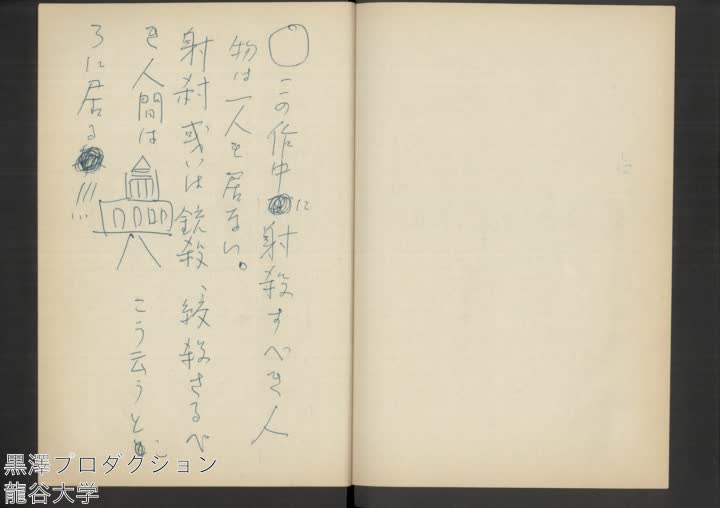 ○この作中に射殺すべき人
物は一人も居ない。
射殺或いは銃殺、絞殺さるべ
き人間は こう云うとこ
ろに居る!!!
黒澤プロダクション
龍谷大学